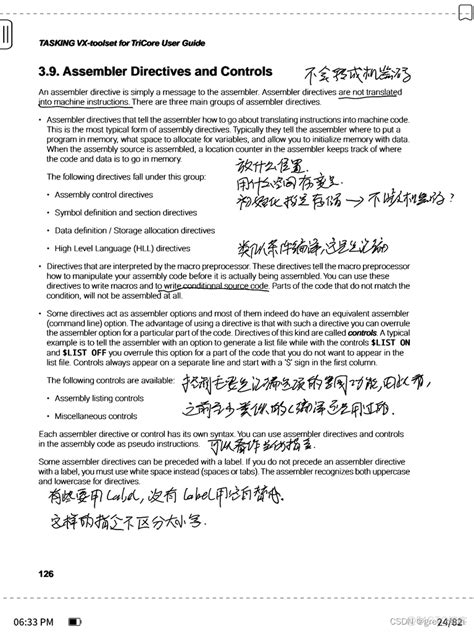 TASKING VX-toolset for TriCore User Guide
3.9. Assembler Directives and Controls
不会转成机器码
An assembler directive is simply a message to the assembler. Assembler directives are not translated
into machine instructions. There are three main groups of assembler directives.
• Assembler directives that tell the assembler how to go about translating instructions into machine code.
This is the most typical form of assembly directives. Typically they tell the assembler where to put a
program in memory, what space to allocate for variables, and allow you to initialize memory with data.
When the assembly source is assembled, a location counter in the assembler keeps track of where
the code and data is to go in memory.
放什么位置.
The following directives fall under this group:
用什么空间存变量.
• Assembly control directives
初始化指定存储 → 不算机器码?
• Symbol definition and section directives
• Data definition / Storage allocation directives
• High Level Language (HLL) directives
类似条件编译,
• Directives that are interpreted by the macro preprocessor. These directives tell the macro preprocessor
how to manipulate your assembly code before it is actually being assembled. You can use these
directives to write macros and to write conditional source code. Parts of the code that do not match the
condition, will not be assembled at all.
• Some directives act as assembler options and most of them indeed do have an equivalent assembler
(command line) option. The advantage of using a directive is that with such a directive you can overrule
the assembler option for a particular part of the code. Directives of this kind are called controls. A typical
example is to tell the assembler with an option to generate a list file while with the controls $LIST ON
and $LIST OFF you overrule this option for a part of the code that you do not want to appear in the
list file. Controls always appear on a separate line and start with a '$' sign in the first column.
The following controls are available:
控制
功能,
• Assembly listing controls
之前
• Miscellaneous controls
Each assembler directive or control has its own syntax. You can use assembler directives and controls
in the assembly code as pseudo instructions.
可以看作是伪指令.
Some assembler directives can be preceded with a label. If you do not precede an assembler directive
with a label, you must use white space instead (spaces or tabs). The assembler recognizes both uppercase
and lowercase for directives.
有些要用 Label, 没有 label 用空白替代.
这样的指令不区分大小写.
126
06:33 PM
24/82